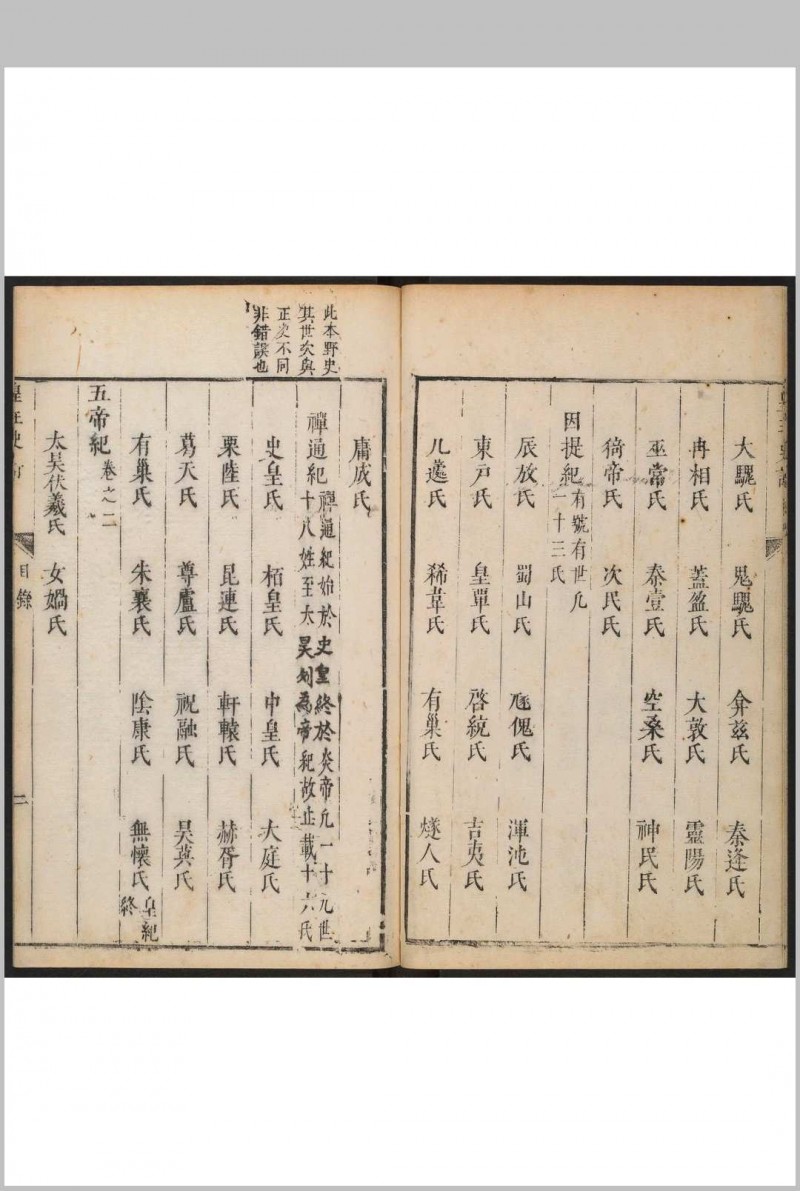 大騩氏 鬼騩氏 弇茲氏 泰逢氏
冉相氏 蓋盈氏 大敦氏 靈陽氏
巫常氏 泰壹氏 空桑氏 神民氏
猗帝氏 次民氏
因提紀 有號有世凡
一十三氏
辰放氏 蜀山氏 豗傀氏 渾沌氏
東戶氏 皇覃氏 啓統氏 吉夷氏
几蘧氏 狶韋氏 有巢氏 燧人氏
庸成氏
此本野史
其世次與
正史不同
非錯誤也
禪通紀 禪通紀始於史皇終於炎帝凡一十九世
十八姓至太昊列為帝紀故止載十六氏
史皇氏 栢皇氏 中皇氏 大庭氏
栗陸氏 昆連氏 軒轅氏 赫胥氏
葛天氏 尊盧氏 祝融氏 昊英氏
有巢氏 朱襄氏 陰康氏 無懷氏 皇紀
終
五帝紀 卷之二
太昊伏羲氏 女媧氏
目錄 二